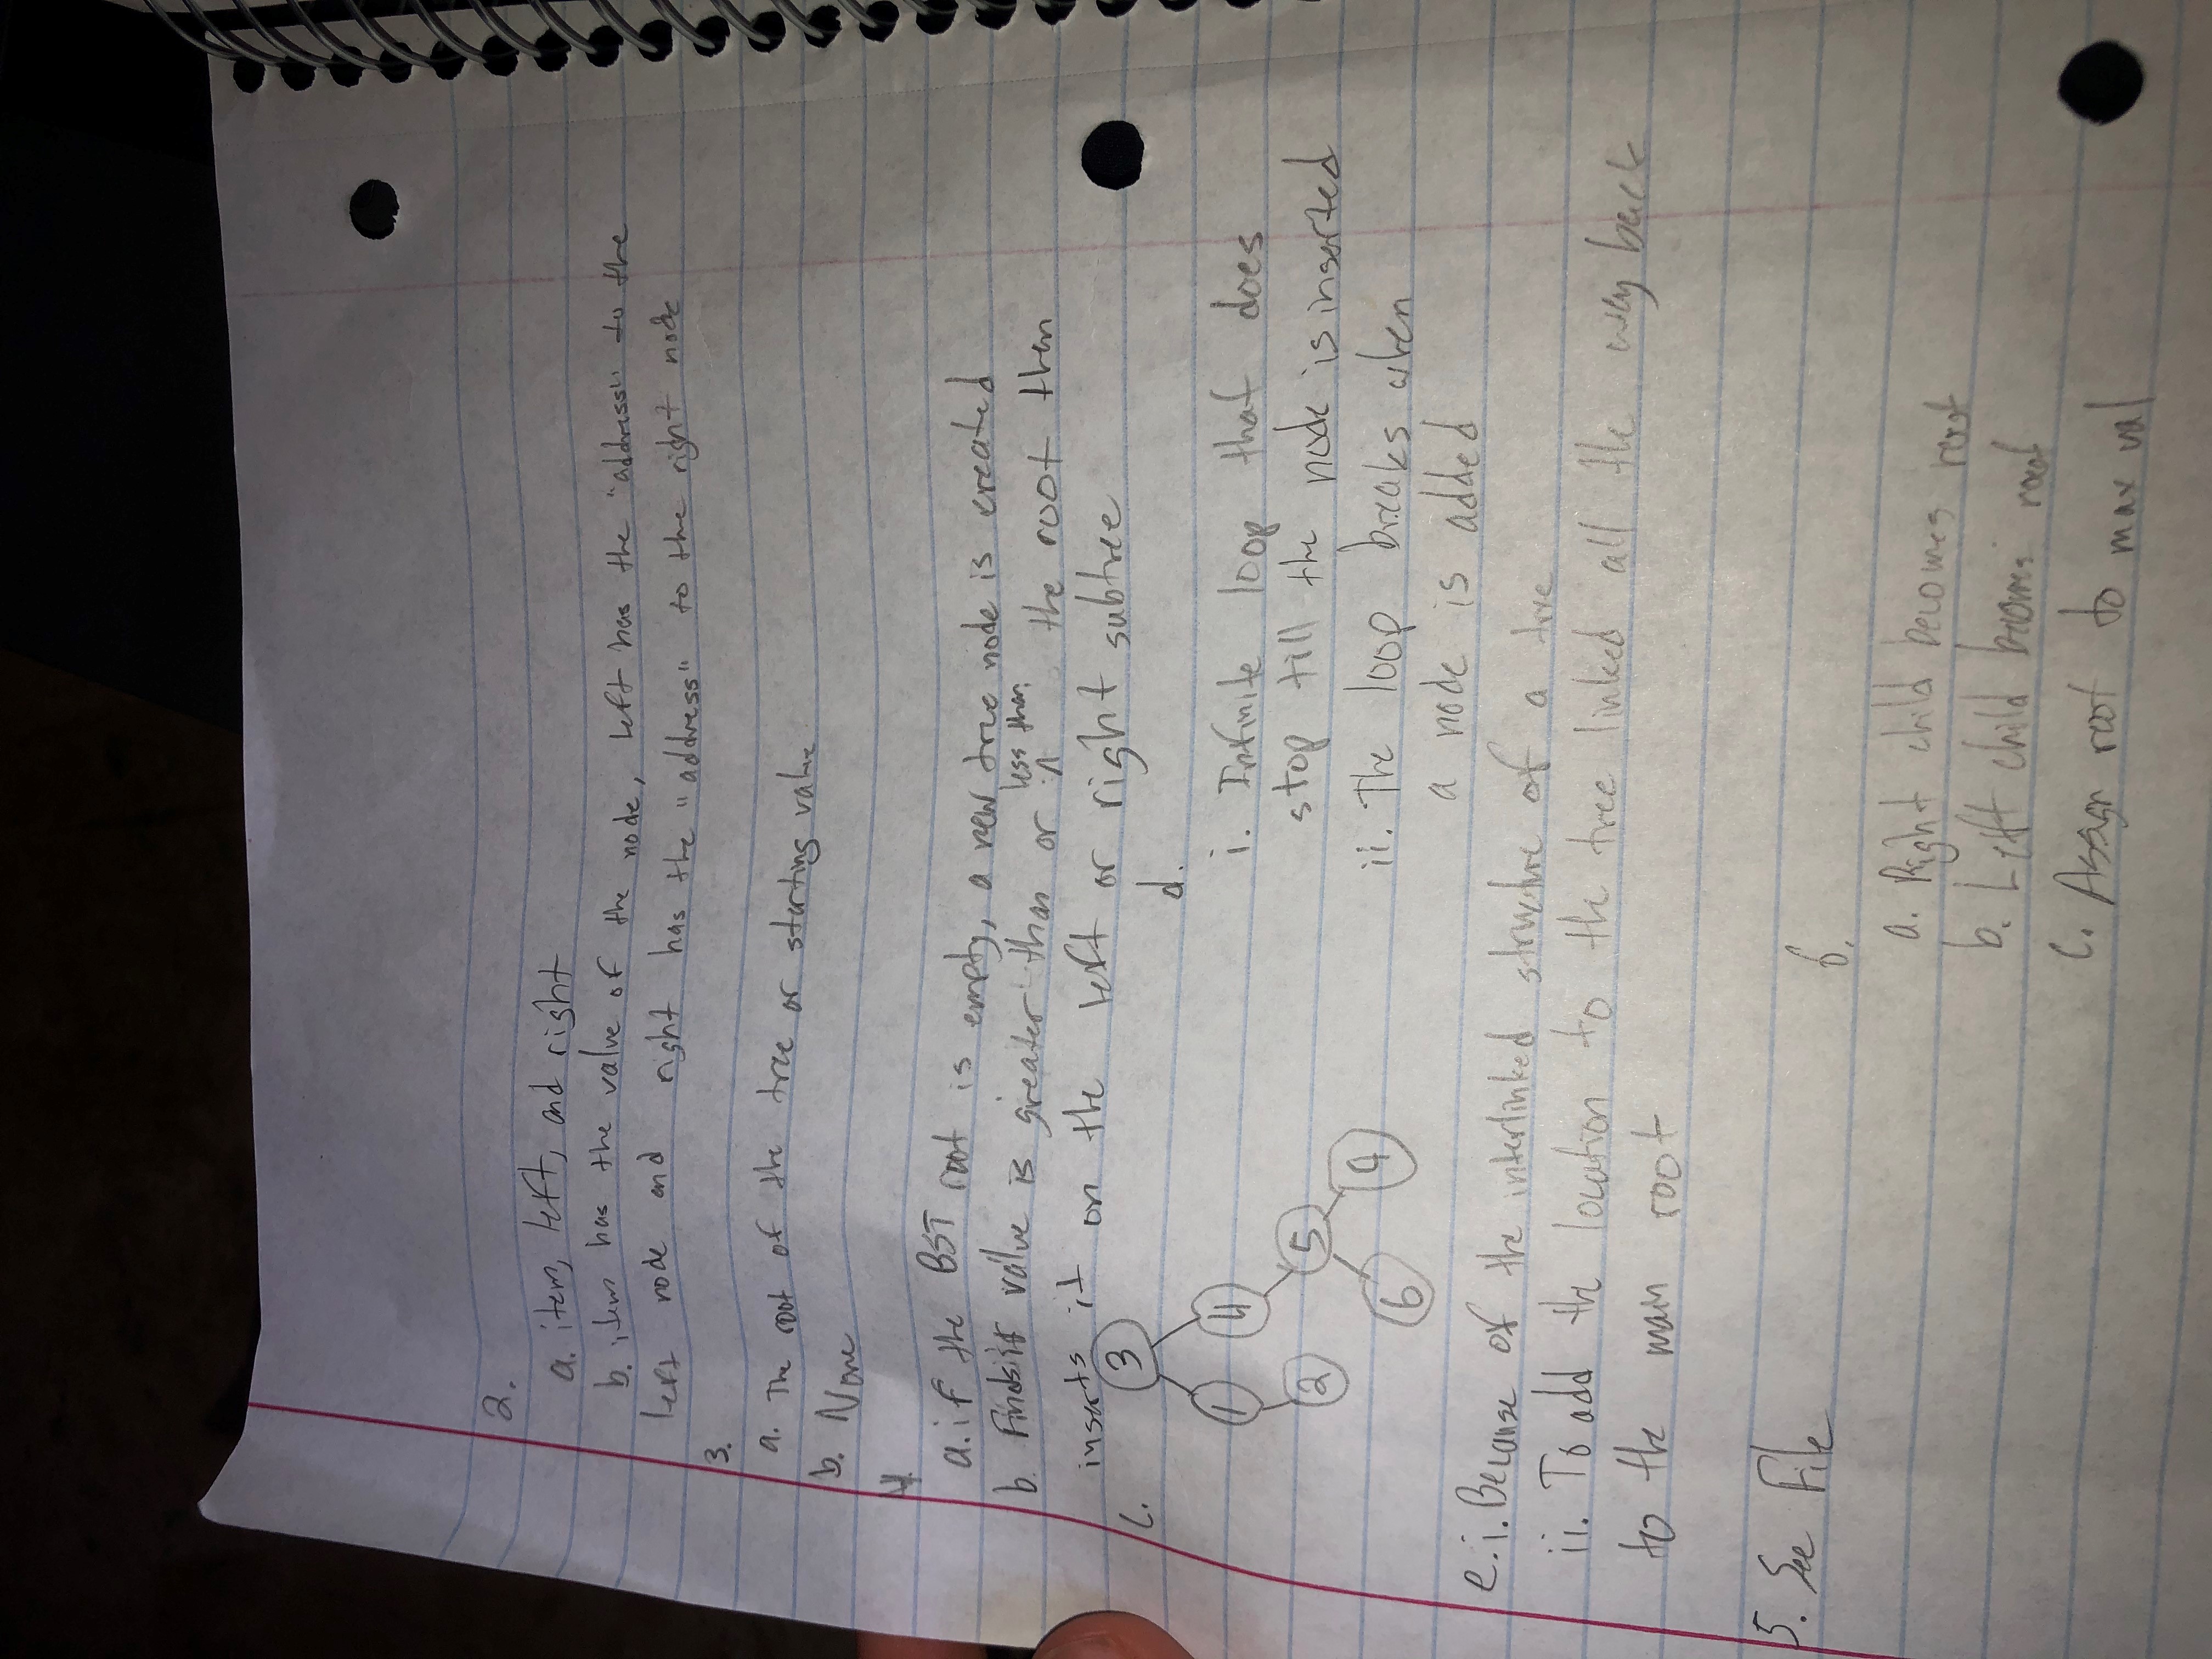 2.
a. item, left, and right
b. item has the value of the node, left has the "address" to the
left node and right has the "address" to the right node
3.
a. The root of the tree or starting value
b. None
4.
a. if the BST root is empty, a new tree node is created
b. Finds if value is greater than or less than the root then
inserts it on the left or right subtree
c.
3
1
4
2
5
6
9
d.
i. Infinite loop that does
stop till the node is inserted
ii. The loop breaks when
a node is added
e. i. Because of the interlinked structure of a tree
ii. To add the location to the tree linked all the way back
to the main root
5. See File
6.
a. Right child becomes root
b. Left child becomes root
c. Assign root to max val